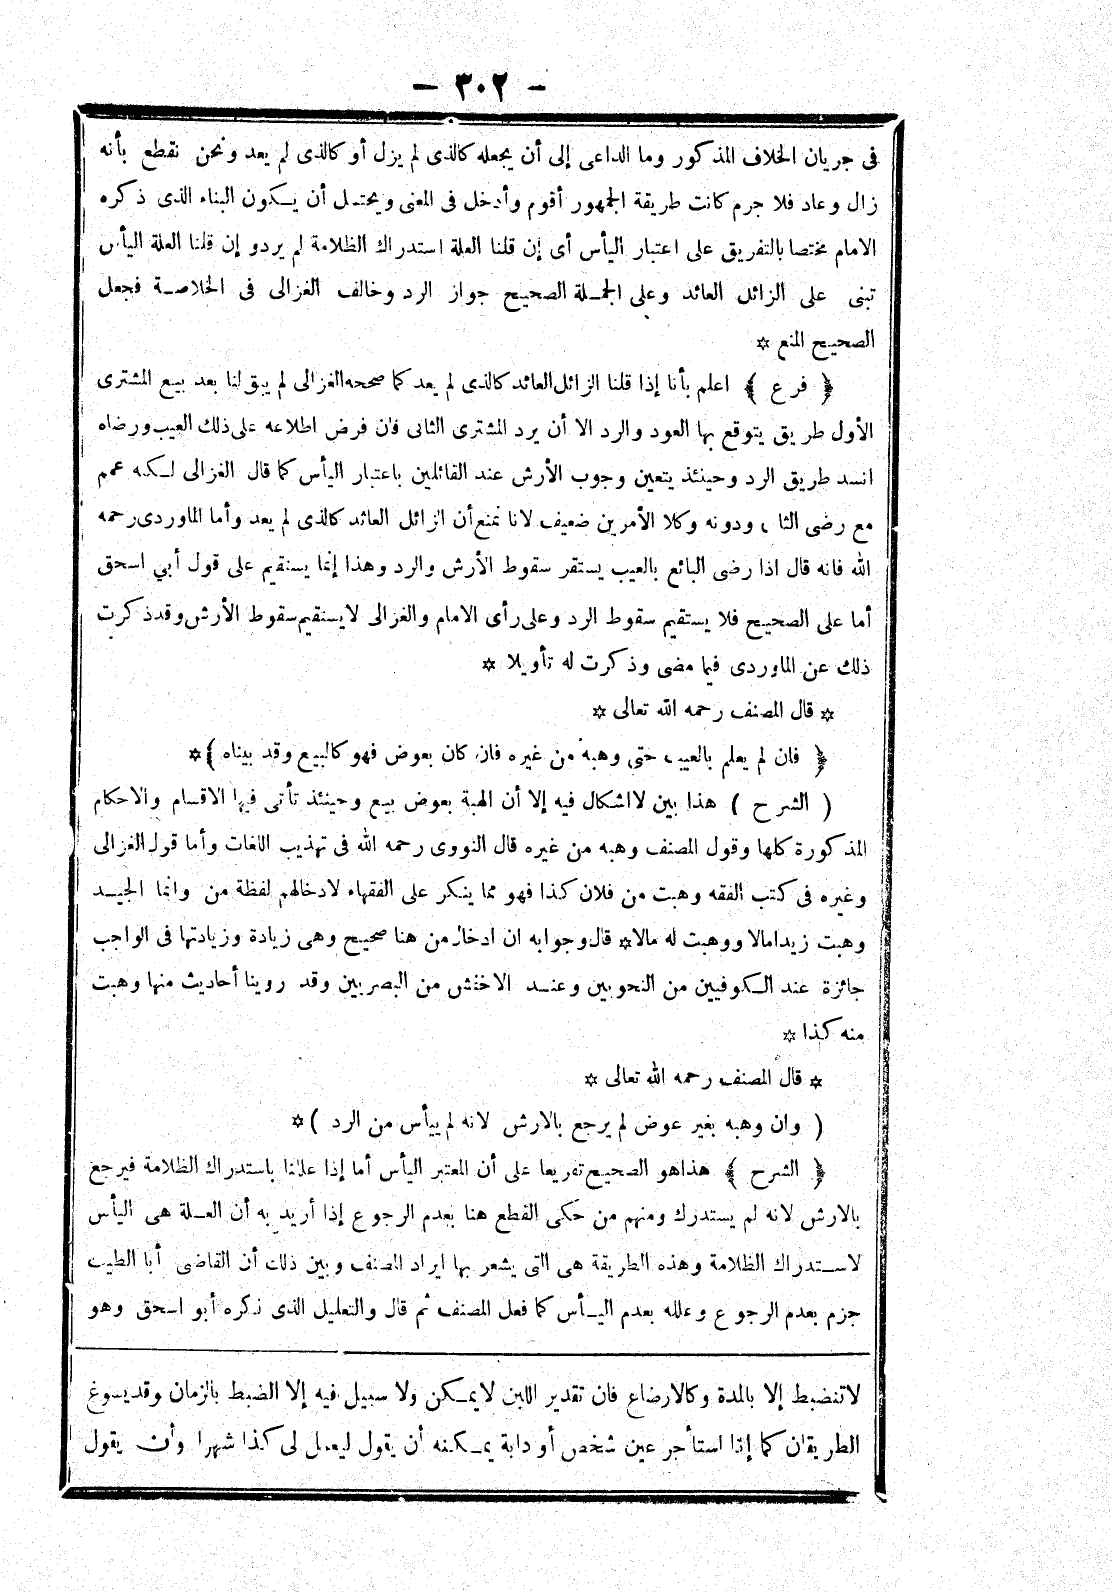 - ٣٠٢ -
فى جريان الخلاف المذكور وما الداعى إلى أن يجعله كالذى لم يزل أو كالذى لم يعد ونحن نقطع بأنه
زال وعاد فلا جرم كانت طريقة الجمهور أقوم وأدخل فى المعنى ويحتمل أن يكون البناء الذى ذكره
الامام مختصا بالتفريق على اعتبار اليأس أى إن قلنا العلة استدراك الظلامة لم يرد وإن قلنا العلة اليأس
تبنى على الزائل العائد وعلى الجملة الصحيح جواز الرد وخالف الغزالى فى الخلاصة فجعل
الصحيح المنع *
﴿ فرع ﴾ اعلم بأنا إذا قلنا الزائل العائد كالذى لم يعد كما صححه الغزالى لم يبق لنا بعد بيع المشترى
الأول طريق يتوقع بها العود والرد الا أن يرد المشترى الثانى فان فرض اطلاعه على ذلك العيب ورضاه
انسد طريق الرد وحينئذ يتعين وجوب الأرش عند القائلين باعتبار اليأس كما قال الغزالى لكنه عمم
مع رضى الثا ودونه وكلا الأمرين ضعيف لانا نمنع أن الزائل العائد كالذى لم يعد وأما الماوردى رحمه
الله فانه قال اذا رضى البائع بالعيب يستقر سقوط الأرش والرد وهذا إنما يستقيم على قول أبي اسحق
أما على الصحيح فلا يستقيم سقوط الرد وعلى رأى الامام والغزالى لا يستقيم سقوط الأرش وقد ذكرت
ذلك عن الماوردى فيما مضى وذكرت له تأويلا *
* قال المصنف رحمه الله تعالى *
﴿ فان لم يعلم بالعيب حتى وهبه من غيره فان كان بعوض فهو كالبيع وقد بيناه ﴾ *
( الشرح ) هذا بين لا اشكال فيه إلا أن الهبة بعوض بيع وحينئذ تأتى فيها الاقسام والاحكام
المذكورة كلها وقول المصنف وهبه من غيره قال النووى رحمه الله فى تهذيب اللغات وأما قول الغزالى
وغيره فى كتب الفقه وهبت من فلان كذا فهو مما ينكر على الفقهاء لادخالهم لفظة من وانما الجيد
وهبت زيدا مالا ووهبت له مالا * قال وجوابه ان ادخال من هنا صحيح وهى زيادة وزيادتها فى الواجب
جائزة عند الكوفيين من النحويين وعند الاخفش من البصريين وقد روينا أحاديث منها وهبت
منه كذا *
* قال المصنف رحمه الله تعالى *
( وان وهبه بغير عوض لم يرجع بالارش لانه لم ييأس من الرد ) *
﴿ الشرح ﴾ هذا هو الصحيح تفريعا على أن المعتبر اليأس أما إذا عللنا باستدراك الظلامة فيرجع
بالارش لانه لم يستدرك ومنهم من حكى القطع هنا بعدم الرجوع إذا أريد به أن العلة هى اليأس
لاستدراك الظلامة وهذه الطريقة هى التى يشعر بها ايراد المصنف وبين ذلك أن القاضى أبا الطيب
جزم بعدم الرجوع وعلله بعدم اليأس كما فعل المصنف ثم قال والتعليل الذى ذكره أبو اسحق وهو
لا تنضبط إلا بالمدة وكالارضاع فان تقدير اللبن لا يمكن ولا سبيل فيه إلا الضبط بالزمان وقد يسوغ
الطريقان كما إذا استأجر عين شخص أو دابة يمكنه أن يقول ليعمل لى كذا شهرا وأن يقول